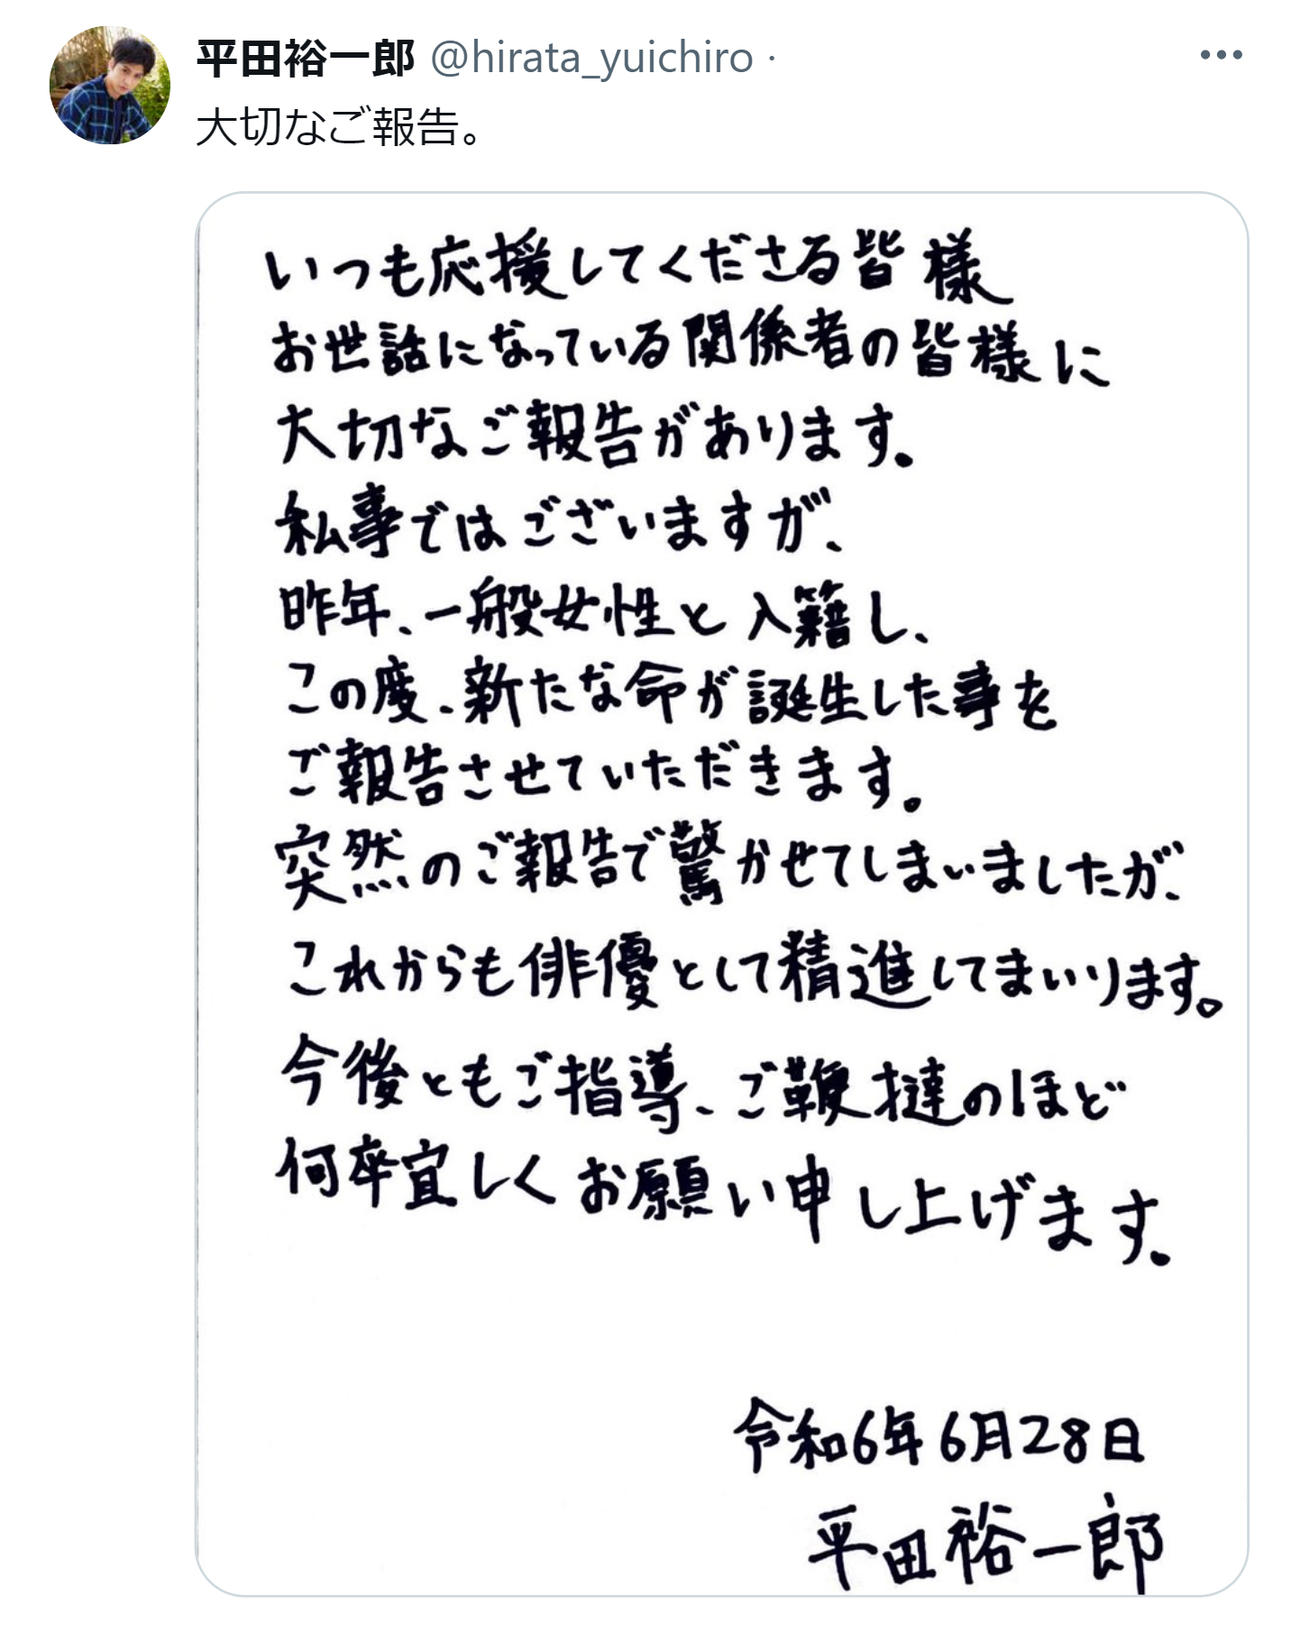 平田裕一郎 @hirata_yuichiro ·
大切なご報告。
いつも応援してくださる皆様
お世話になっている関係者の皆様に
大切なご報告があります。
私事ではございますが、
昨年、一般女性と入籍し、
この度、新たな命が誕生した事を
ご報告させていただきます。
突然のご報告で驚かせてしまいましたが、
これからも俳優として精進してまいります。
今後ともご指導、ご鞭撻のほど
何卒宜しくお願い申し上げます。
令和6年6月28日
平田裕一郎